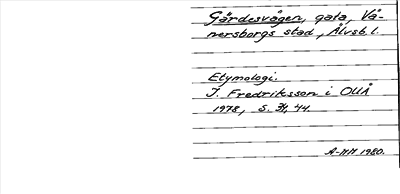 Gärdesvägen, gata, Vä-
nersborgs stad, Älvsb. l.
Etymologi.
J. Fredriksson i OUÅ
1978, s. 34, 44.
A-MH 1980.